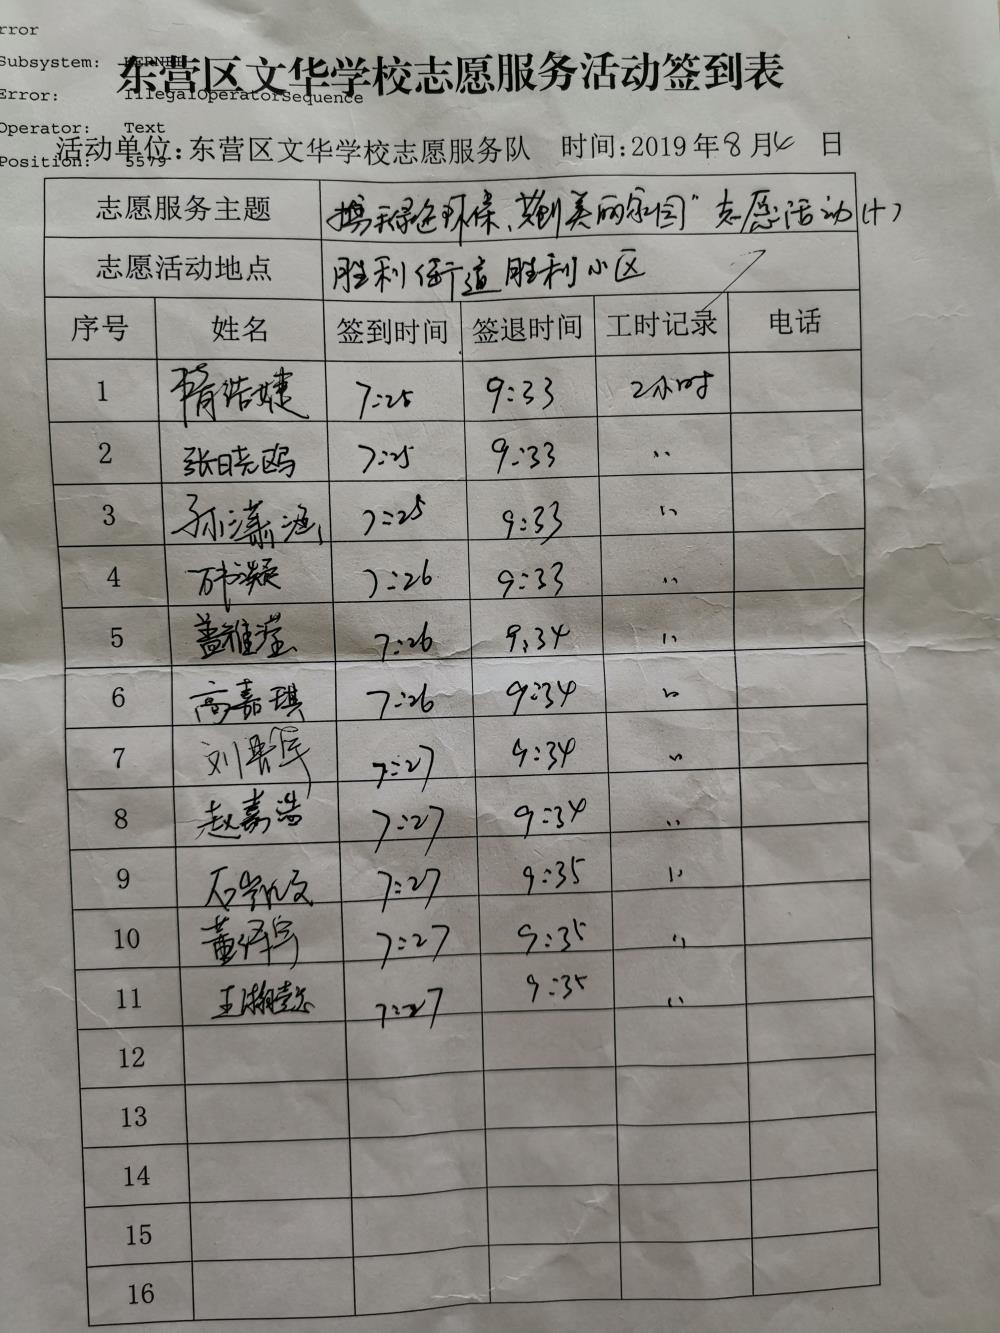 rror
Subsystem: KERNEL
Error: IllegalOperatorSequence
Operator: Text
Position: 5579
东营区文华学校志愿服务活动签到表
活动单位:东营区文华学校志愿服务队 时间:2019年8月4日
志愿服务主题 绿色环保、美丽家园”志愿活动(十)
志愿活动地点 胜利街道胜利小区
序号 姓名 签到时间 签退时间 工时记录 电话
1 隋浩婕 7:25 9:33 2小时
2 张晓鸥 7:25 9:33 〃
3 孙潇涵 7:25 9:33 〃
4 7:26 9:33 〃
5 盖雅滢 7:26 9:34 〃
6 高嘉琪 7:26 9:34 〃
7 刘 7:27 9:34 〃
8 赵嘉浩 7:27 9:34 〃
9 石凯文 7:27 9:35 〃
10 董泽宇 7:27 9:35 〃
11 王瀚懿 7:27 9:35 〃
12
13
14
15
16